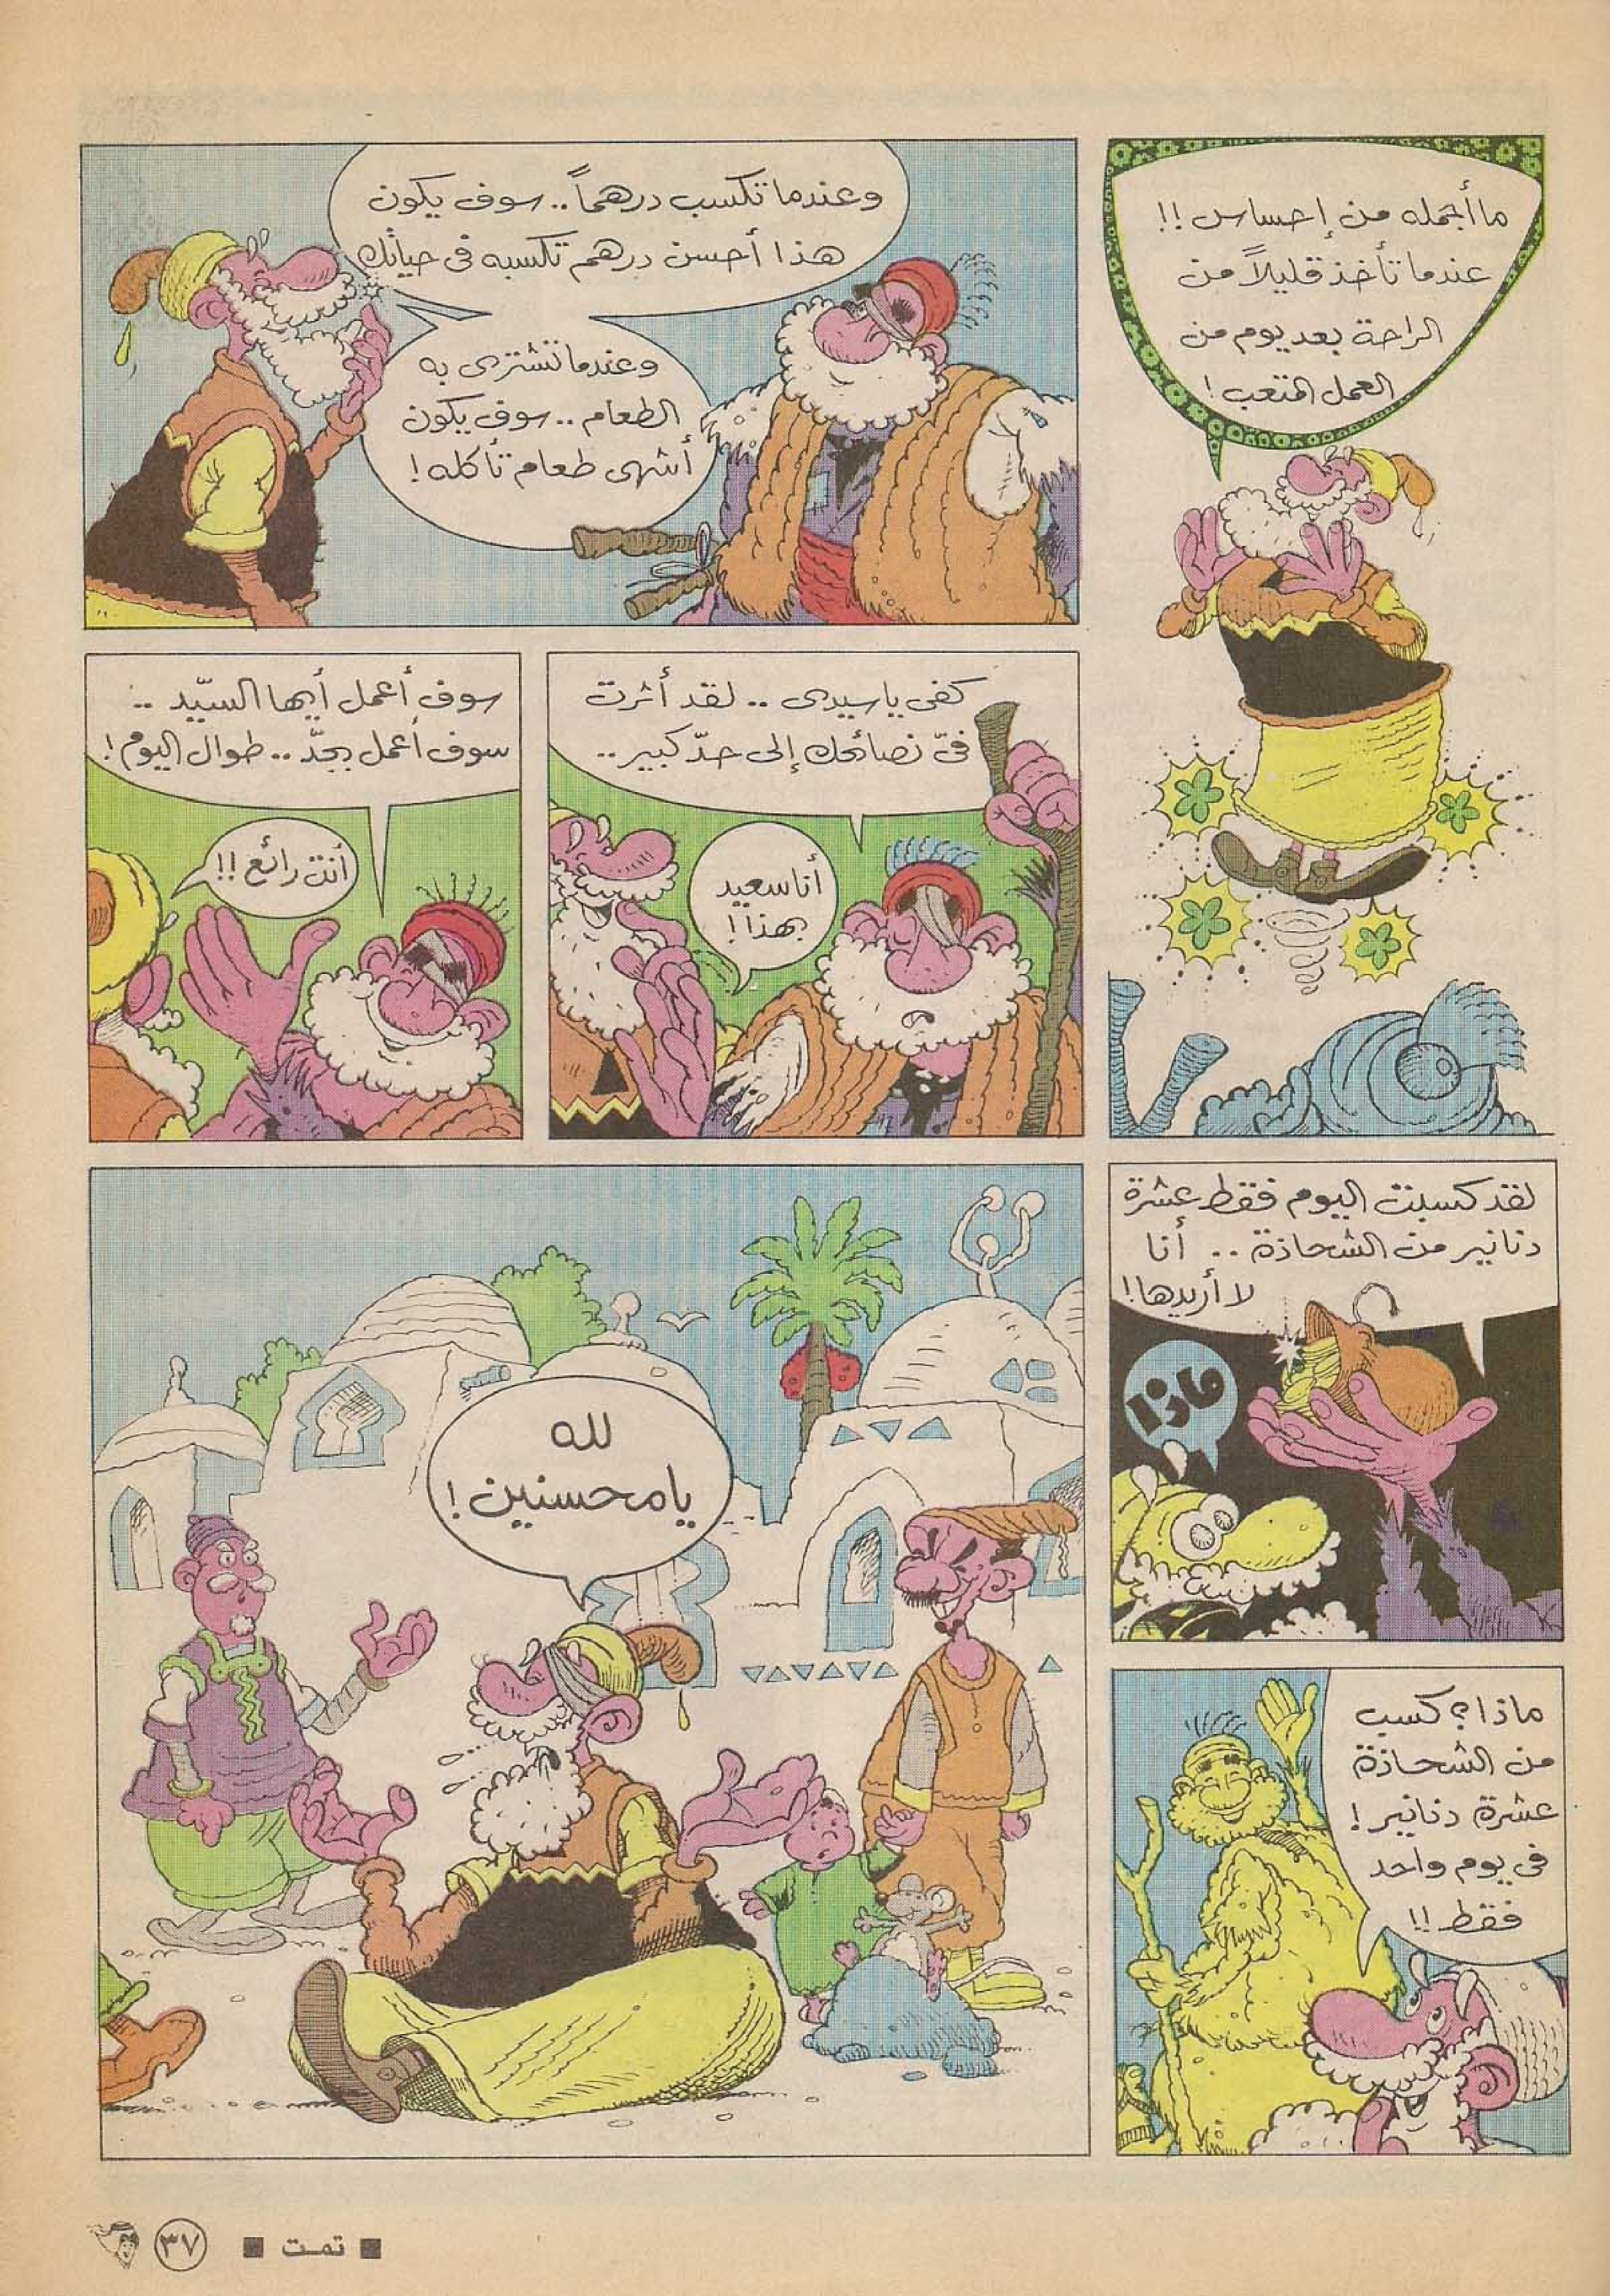 ما أجمله من إحساس !!
عندما تأخذ قليلاً من
الراحة بعد يوم من
العمل المتعب !
وعندما تكسب درهماً .. سوف يكون
هذا أحسن درهم تكسبه فى حياتك
وعندما تشترى به
الطعام .. سوف يكون
أشهى طعام تأكله !
كفى يا سيدى .. لقد أثرت
فىّ نصائحك إلى حدّ كبير ..
أنا سعيد
بهذا !
سوف أعمل أيها السيّد ..
سوف أعمل بجدّ .. طوال اليوم !
أنت رائع !!
لقد كسبت اليوم فقط عشرة
دنانير من الشحاذة .. أنا
لا أريدها !
ماذا
ماذا ؟ كسب
من الشحاذة
عشرة دنانير !
فى يوم واحد
فقط !!
لله
يا محسنين !
■ تمت ■
٣٧